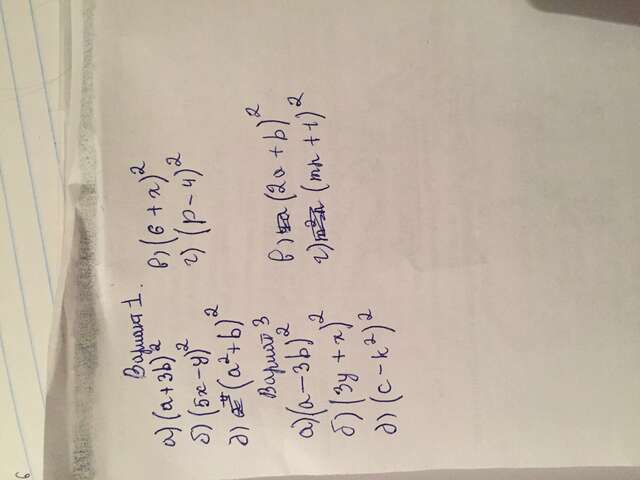 Вариант 1.
а) (a+3b)² в) (6+x)²
б) (5x-y)² г) (p-4)²
д) (a²+b)²
Вариант 3
а) (a-3b)² в) (2a+b)²
б) (3y+x)² г) (mn+1)²
д) (c-k²)²
6